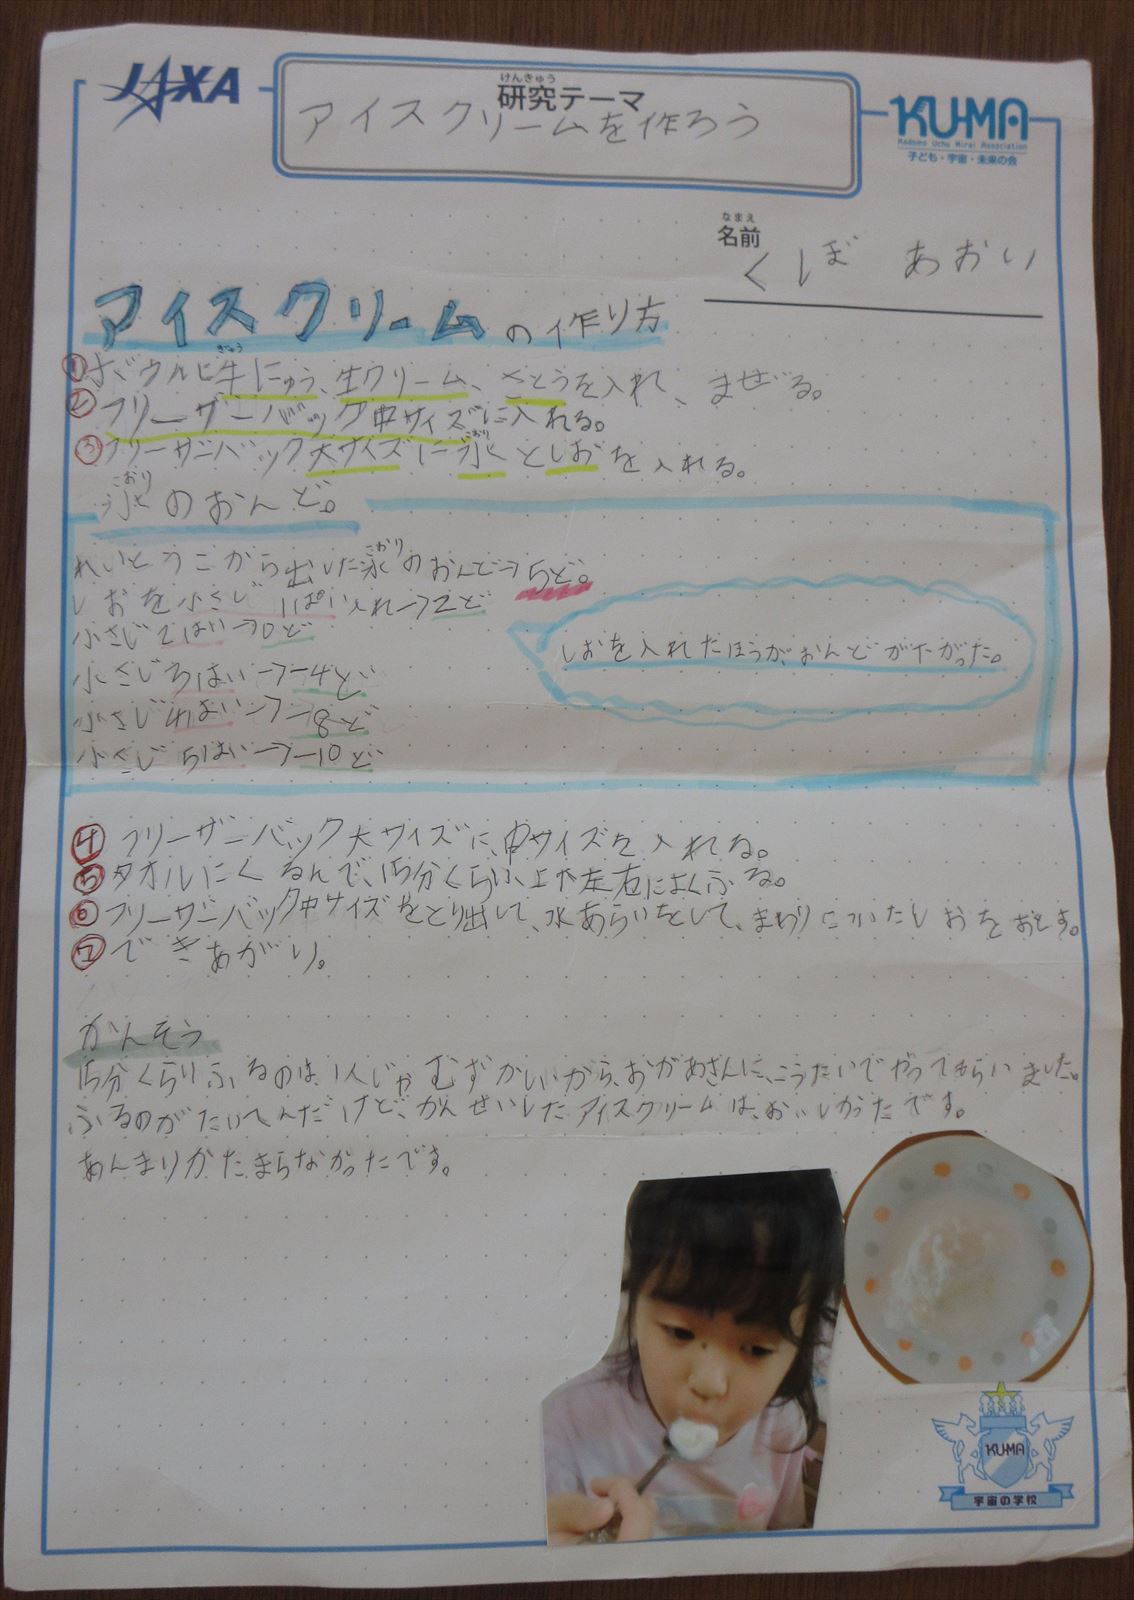 JAXA
けんきゅう
研究テーマ
アイスクリームを作ろう
KU-MA
Kodomo Uchu Mirai Association
子ども・宇宙・未来の会
なまえ
名前
くぼ あおい
アイスクリームの作り方
ぎゅう
①ボウルに牛にゅう、生クリーム、さとうを入れ、まぜる。
②フリーザーバック中サイズに入れる。
こおり
③フリーザーバック大サイズに氷としおを入れる。
こおり
氷のおんど。
こおり
れいとうこから出した氷のおんど→5ど。
しおを小さじ1ぱい入れ→2ど
小さじ2はい→0ど
しおを入れたほうが、おんどがたがった。
小さじ3はい→-4ど
小さじ4はい→-8ど
小さじ5はい→-10ど
④フリーザーバック大サイズに、中サイズを入れる。
⑤タオルにくるんで、15分くらい、上下左右によくふる。
⑥フリーザーバック中サイズをとり出して、水あらいをして、まわりについたしおをおとす。
⑦できあがり。
かんそう
15分くらいふるのは、1人じゃむずかしいから、おかあさんに、こうたいでやってもらいました。
ふるのがたいへんだけど、かんせいしたアイスクリームは、おいしかったです。
あんまりかたまらなかったです。
KU-MA
宇宙の学校